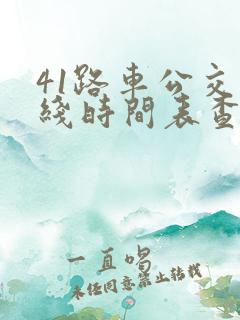 41路車公交
綫時間表查
一直唱
未经同意禁止转载